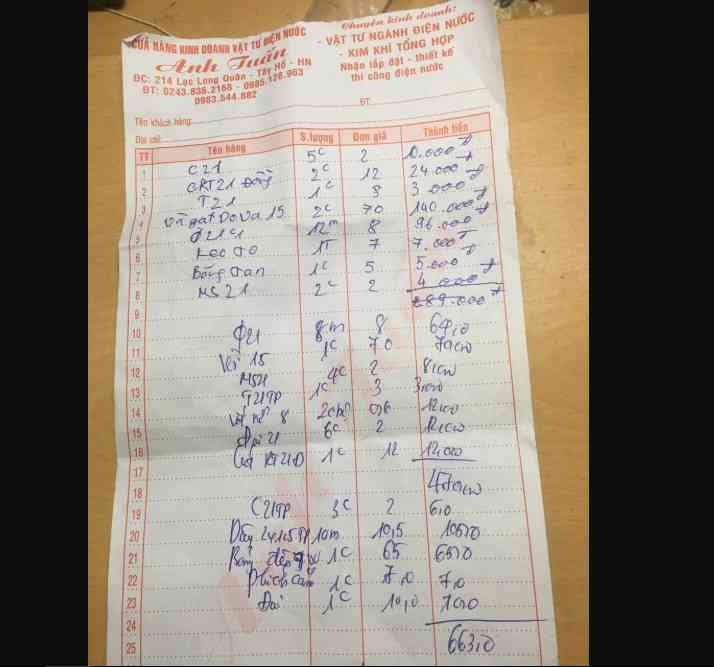 CỬA HÀNG KINH DOANH VẬT TƯ ĐIỆN NƯỚC
Anh Tuấn
ĐC: 214 Lạc Long Quân - Tây Hồ - HN
ĐT: 0243.836.2168 - 0985.128.963
0983.544.882
Chuyên kinh doanh:
- VẬT TƯ NGÀNH ĐIỆN NƯỚC
- KIM KHÍ TỔNG HỢP
Nhận lắp đặt - thiết kế
thi công điện nước
ĐT:
Tên khách hàng:
Địa chỉ:
TT Tên hàng S.lượng Đơn giá Thành tiền
1 C21 5c 2 10.000đ
2 CRT21 đồng 2c 12 24.000đ
3 T21 1c 3 3.000đ
4 15 2c 70 140.000đ
5 Ф21 12m 8 96.000
6 Keo to 1T 7 7.000đ
7 Băng tan 1c 5 5.000đ
8 MS21 2c 2 4.000
9 289.000đ
10 Ф21 8m 8 64,0
11 Vòi 15 1c 70 7000
12 MS21 4c 2 8,000
13 T21TP 1c 3 3,000
14 8 0,6 12,00
15 Đai 21 6c 2 12,000
16 1c 12 12,000
17
18
19 C21TP 3c 2 6,0
20 Dây 10m 10,5 1050
21 Bóng 1c 65 650
22 Phích cắm 1c 7,0 7,0
23 Đui 1c 10,0
24
25 663,0